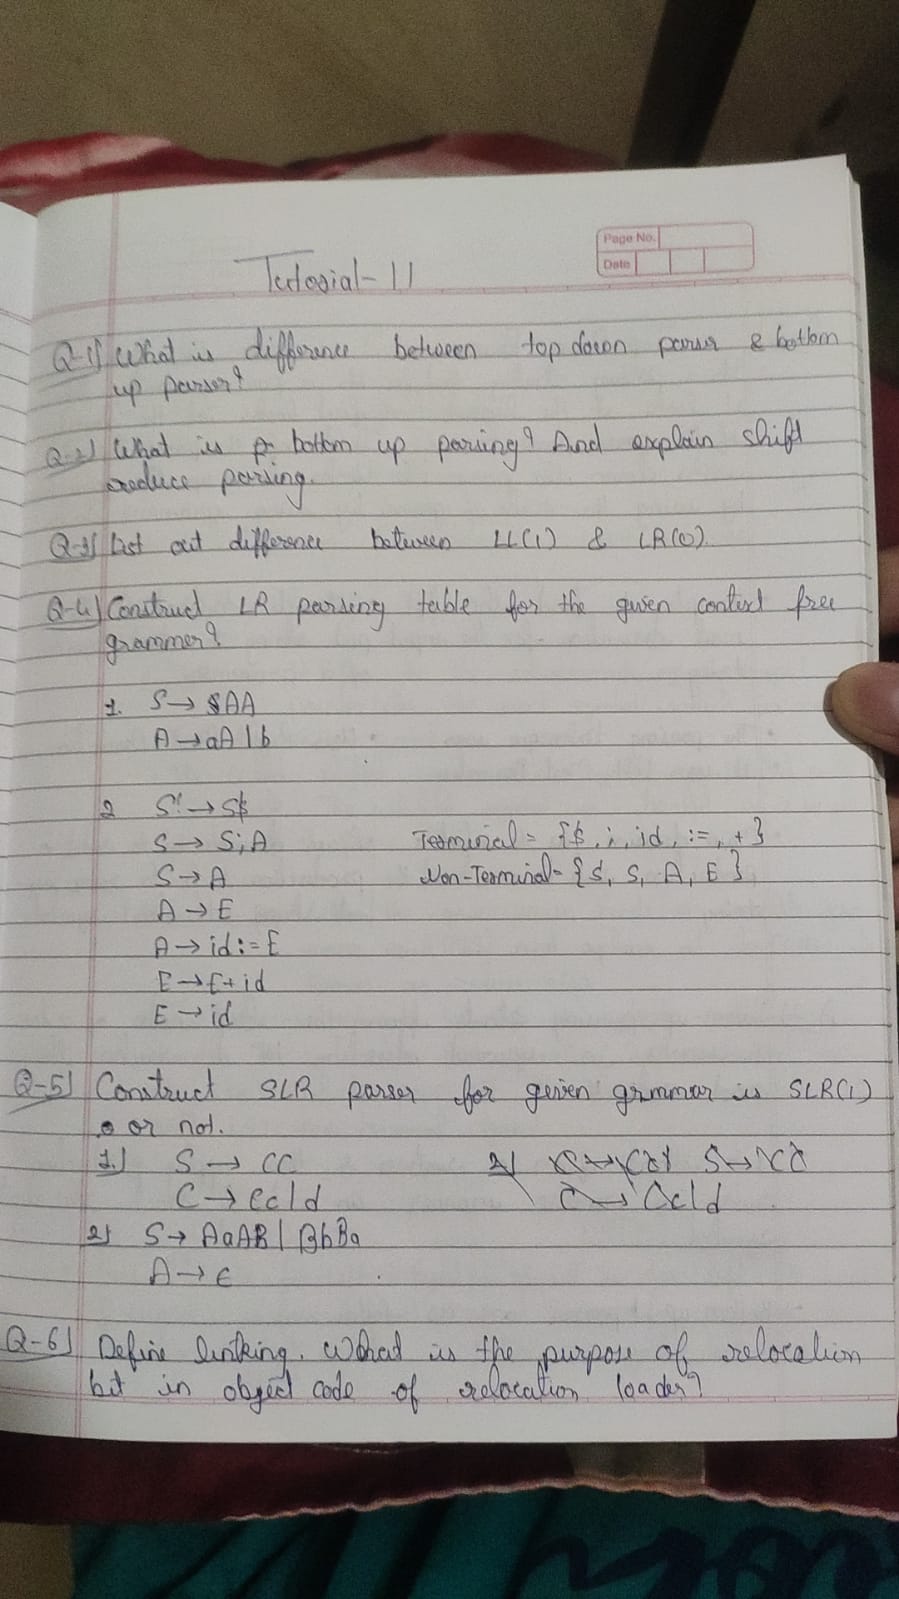 Page No.
Date
Tutorial-11
Q-1) What is difference between top down parser & bottom
up parser?
Q-2) What is bottom up parsing? And explain shift
reduce parsing.
Q-3) List out difference between LL(1) & LR(0).
Q-4) Construct LR parsing table for the given context free
grammer?
1. S → AA
A → aA | b
2 S' → S$
S → S;A Terminal = {$, ;, id, :=, + }
S → A Non-Terminal = {S, S, A, E }
A → E
A → id := E
E → E + id
E → id
Q-5) Construct SLR parser for given grmmar is SLR(1)
or not.
1.) S → CC
C → cC | d
2) S → AaAB | BbBa
A → ϵ
Q-6) Define linking. What is the purpose of relocation
bit in object code of relocation loader?